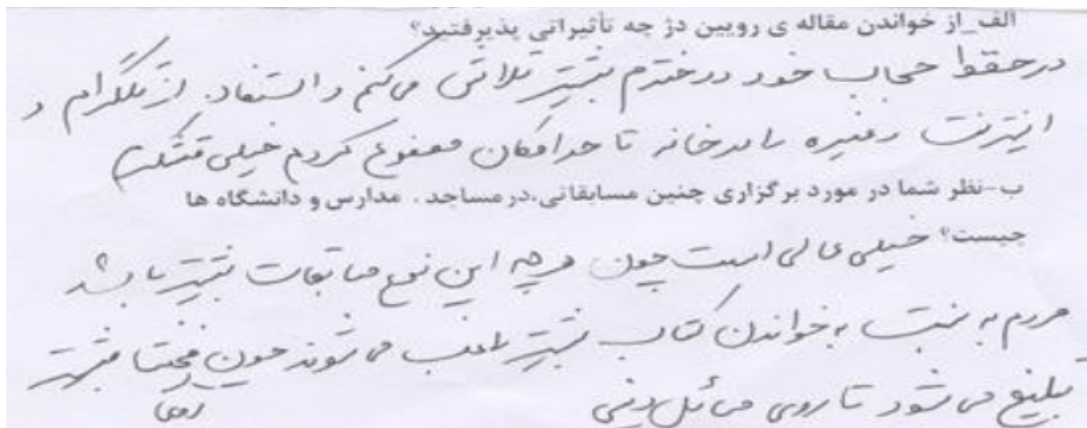 الف_از خواندن مقاله ی رویین دژ چه تأثیراتی پذیرفتید؟
در حفظ حجاب خود و دخترم بیشتر تلاش می کنم و استفاده از تلگرام و
اینترنت و غیره را در خانه تا حد امکان ممنوع کردم خیلی متشکرم
ب-نظر شما در مورد برگزاری چنین مسابقاتی،در مساجد ، مدارس و دانشگاه ها
چیست؟ خیلی عالی است چون هر چه این نوع مسابقات بیشتر باشد
مردم به نسبت به خواندن کتاب بیشتر راغب می شوند چون بیشتر
تبلیغ می شود تا روی مسائل دینی